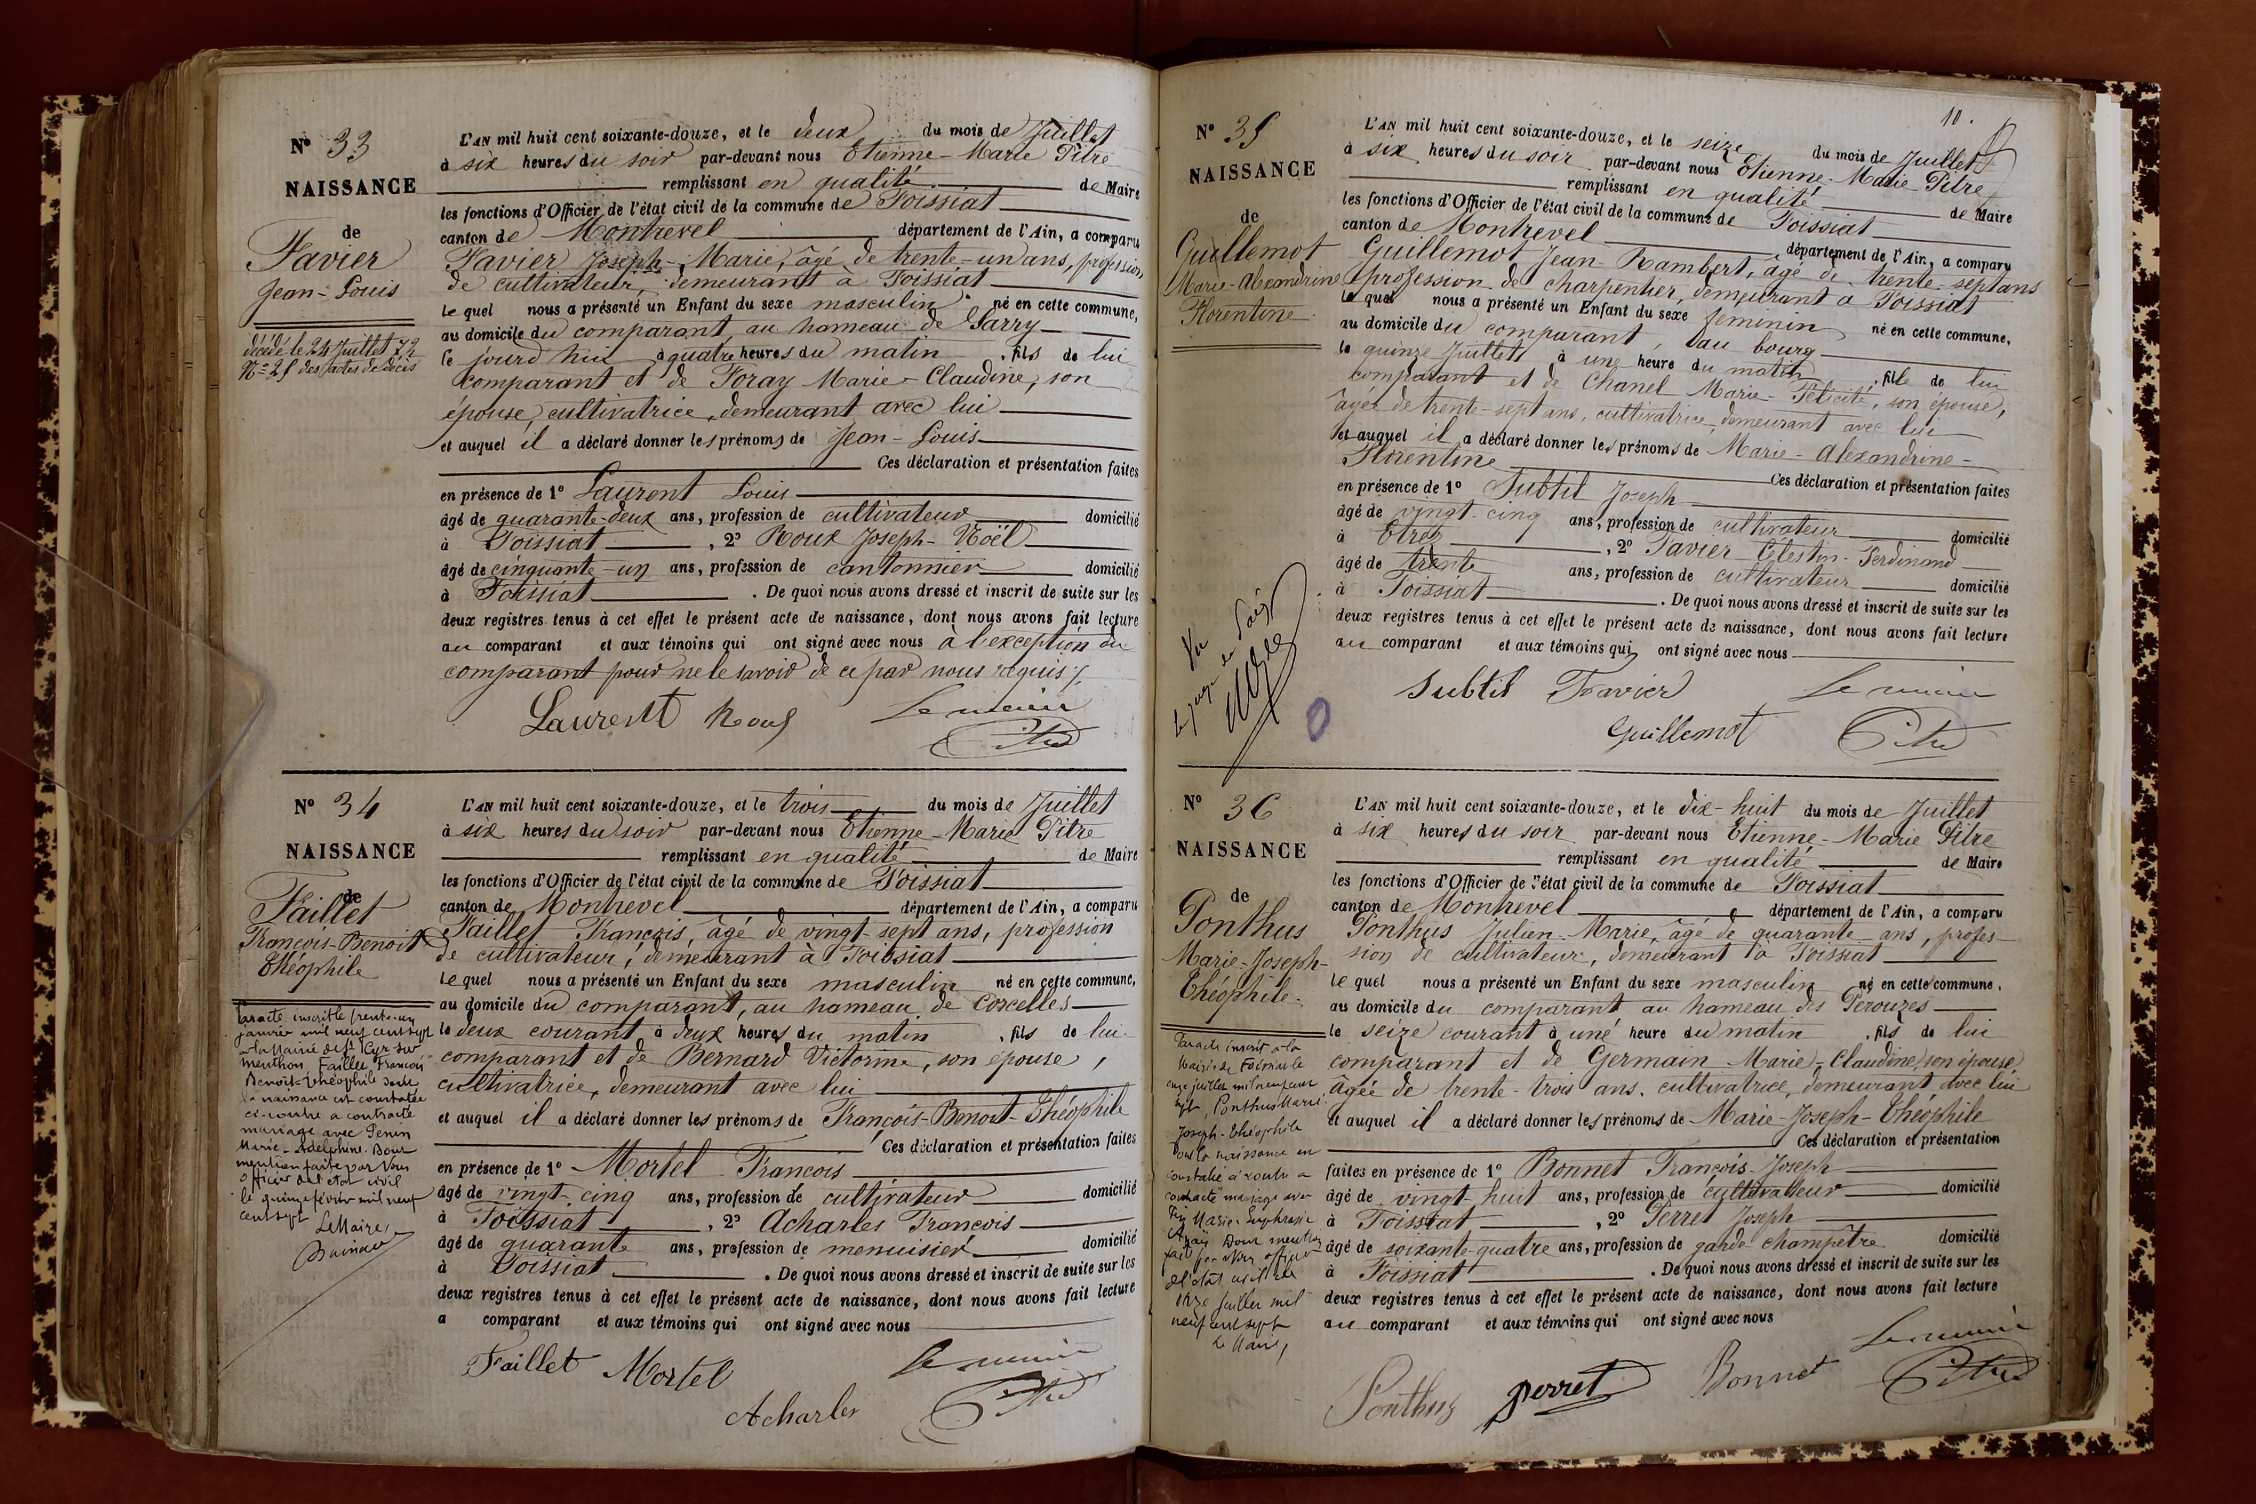 N° 33
NAISSANCE
de
Favier
Jean-Louis
décédé le 24 Juillet 72
N° 25 des actes de décès
L'AN mil huit cent soixante-douze, et le deux du mois de Juillet
à six heures du soir par-devant nous Etienne-Marie Pitre
remplissant en qualité de Maire
les fonctions d'Officier de l'état civil de la commune de Foissiat
canton de Montrevel département de l'Ain, a comparu
Favier Joseph-Marie, âgé de trente-un ans, profession
de cultivateur, demeurant à Foissiat
Le quel nous a présenté un Enfant du sexe masculin né en cette commune,
au domicile du comparant, au hameau de Sarry
ce jourd'hui à quatre heures du matin, fils de lui
comparant et de Foray Marie-Claudine, son
épouse, cultivatrice, demeurant avec lui
et auquel il a déclaré donner les prénoms de Jean-Louis
Ces déclaration et présentation faites
en présence de 1° Laurent Louis
âgé de quarante-deux ans, profession de cultivateur domicilié
à Foissiat, 2° Roux Joseph-Noël
âgé de cinquante-un ans, profession de cantonnier domicilié
à Foissiat. De quoi nous avons dressé et inscrit de suite sur les
deux registres tenus à cet effet le présent acte de naissance, dont nous avons fait lecture
au comparant et aux témoins qui ont signé avec nous à l'exception du
comparant pour ne le savoir de ce par nous requis
Laurent Roux Le maire
Pitre
N° 34
NAISSANCE
de
Faillet
François-Benoit
Théophile
Par acte inscrit le trente-un
janvier mil neuf cent sept
à la Mairie de St Cyr sur
Menthon, Faillet François
Benoit-Théophile dont
la naissance est constatée
ci-contre a contracté
mariage avec Penin
Marie-Adelphine. Dont
mention faite par Nous
officier de l'état civil
le quinze février mil neuf
cent sept Le Maire,
L'AN mil huit cent soixante-douze, et le trois du mois de Juillet
à six heures du soir par-devant nous Etienne-Marie Pitre
remplissant en qualité de Maire
les fonctions d'Officier de l'état civil de la commune de Foissiat
canton de Montrevel département de l'Ain, a comparu
Faillet François, âgé de vingt-sept ans, profession
de cultivateur, demeurant à Foissiat
Le quel nous a présenté un Enfant du sexe masculin né en cette commune,
au domicile du comparant, au hameau de Corcelles
le deux courant à deux heures du matin, fils de lui
comparant et de Bernard Victorine, son épouse,
cultivatrice, demeurant avec lui
et auquel il a déclaré donner les prénoms de François-Benoit-Théophile
Ces déclaration et présentation faites
en présence de 1° Mortel François
âgé de vingt-cinq ans, profession de cultivateur domicilié
à Foissiat, 2° Acharles François
âgé de quarante ans, profession de menuisier domicilié
à Foissiat. De quoi nous avons dressé et inscrit de suite sur les
deux registres tenus à cet effet le présent acte de naissance, dont nous avons fait lecture
a comparant et aux témoins qui ont signé avec nous
Faillet Mortel Le maire
Acharles Pitre
10.
N° 35
NAISSANCE
de
Guillemot
Marie-Alexandrine
Florentine
Vu
L'AN mil huit cent soixante-douze, et le seize du mois de Juillet
à six heures du soir par-devant nous Etienne-Marie Pitre
remplissant en qualité de Maire
les fonctions d'Officier de l'état civil de la commune de Foissiat
canton de Montrevel département de l'Ain, a comparu
Guillemot Jean-Rambert, âgé de trente-sept ans
profession de charpentier, demeurant à Foissiat
Le quel nous a présenté un Enfant du sexe féminin né en cette commune,
au domicile du comparant, au bourg
le quinze Juillet à une heure du matin, fille de lui
comparant et de Chanel Marie-Félicité, son épouse,
âgée de trente-sept ans, cultivatrice, demeurant avec lui
et auquel il a déclaré donner les prénoms de Marie-Alexandrine-
Florentine
Ces déclaration et présentation faites
en présence de 1° Subtil Joseph
âgé de vingt-cinq ans, profession de cultivateur domicilié
à Etrez, 2° Favier Célestin-Ferdinand
âgé de trente ans, profession de cultivateur domicilié
à Foissiat. De quoi nous avons dressé et inscrit de suite sur les
deux registres tenus à cet effet le présent acte de naissance, dont nous avons fait lecture
au comparant et aux témoins qui ont signé avec nous
Subtil Favier Le maire
Guillemot Pitre
N° 36
NAISSANCE
de
Ponthus
Marie-Joseph-
Théophile
Par acte inscrit à la
Mairie de Foissiat le
onze juillet mil neuf cent
sept, Ponthus Marie
Joseph-Théophile
dont la naissance est
constatée ci-contre a
contracté mariage avec
Marie-Euphrasie
Dont mention
faite par Nous officier
de l'état civil le
onze Juillet mil
neuf cent sept
Le Maire,
L'AN mil huit cent soixante-douze, et le dix-huit du mois de Juillet
à six heures du soir par-devant nous Etienne-Marie Pitre
remplissant en qualité de Maire
les fonctions d'Officier de l'état civil de la commune de Foissiat
canton de Montrevel département de l'Ain, a comparu
Ponthus Julien-Marie, âgé de quarante ans, profes-
sion de cultivateur, demeurant à Foissiat
Le quel nous a présenté un Enfant du sexe masculin né en cette commune,
au domicile du comparant au hameau des Perouzes
le seize courant à une heure du matin, fils de lui
comparant et de Germain Marie-Claudine, son épouse,
âgée de trente-trois ans, cultivatrice, demeurant avec lui
et auquel il a déclaré donner les prénoms de Marie-Joseph-Théophile
Ces déclaration et présentation
faites en présence de 1° Bonnet François-Joseph
âgé de vingt-huit ans, profession de cultivateur domicilié
à Foissiat, 2° Perret Joseph
âgé de soixante-quatre ans, profession de garde champêtre domicilié
à Foissiat. De quoi nous avons dressé et inscrit de suite sur les
deux registres tenus à cet effet le présent acte de naissance, dont nous avons fait lecture
au comparant et aux témoins qui ont signé avec nous
Ponthus Perret Bonnet Le maire
Pitre